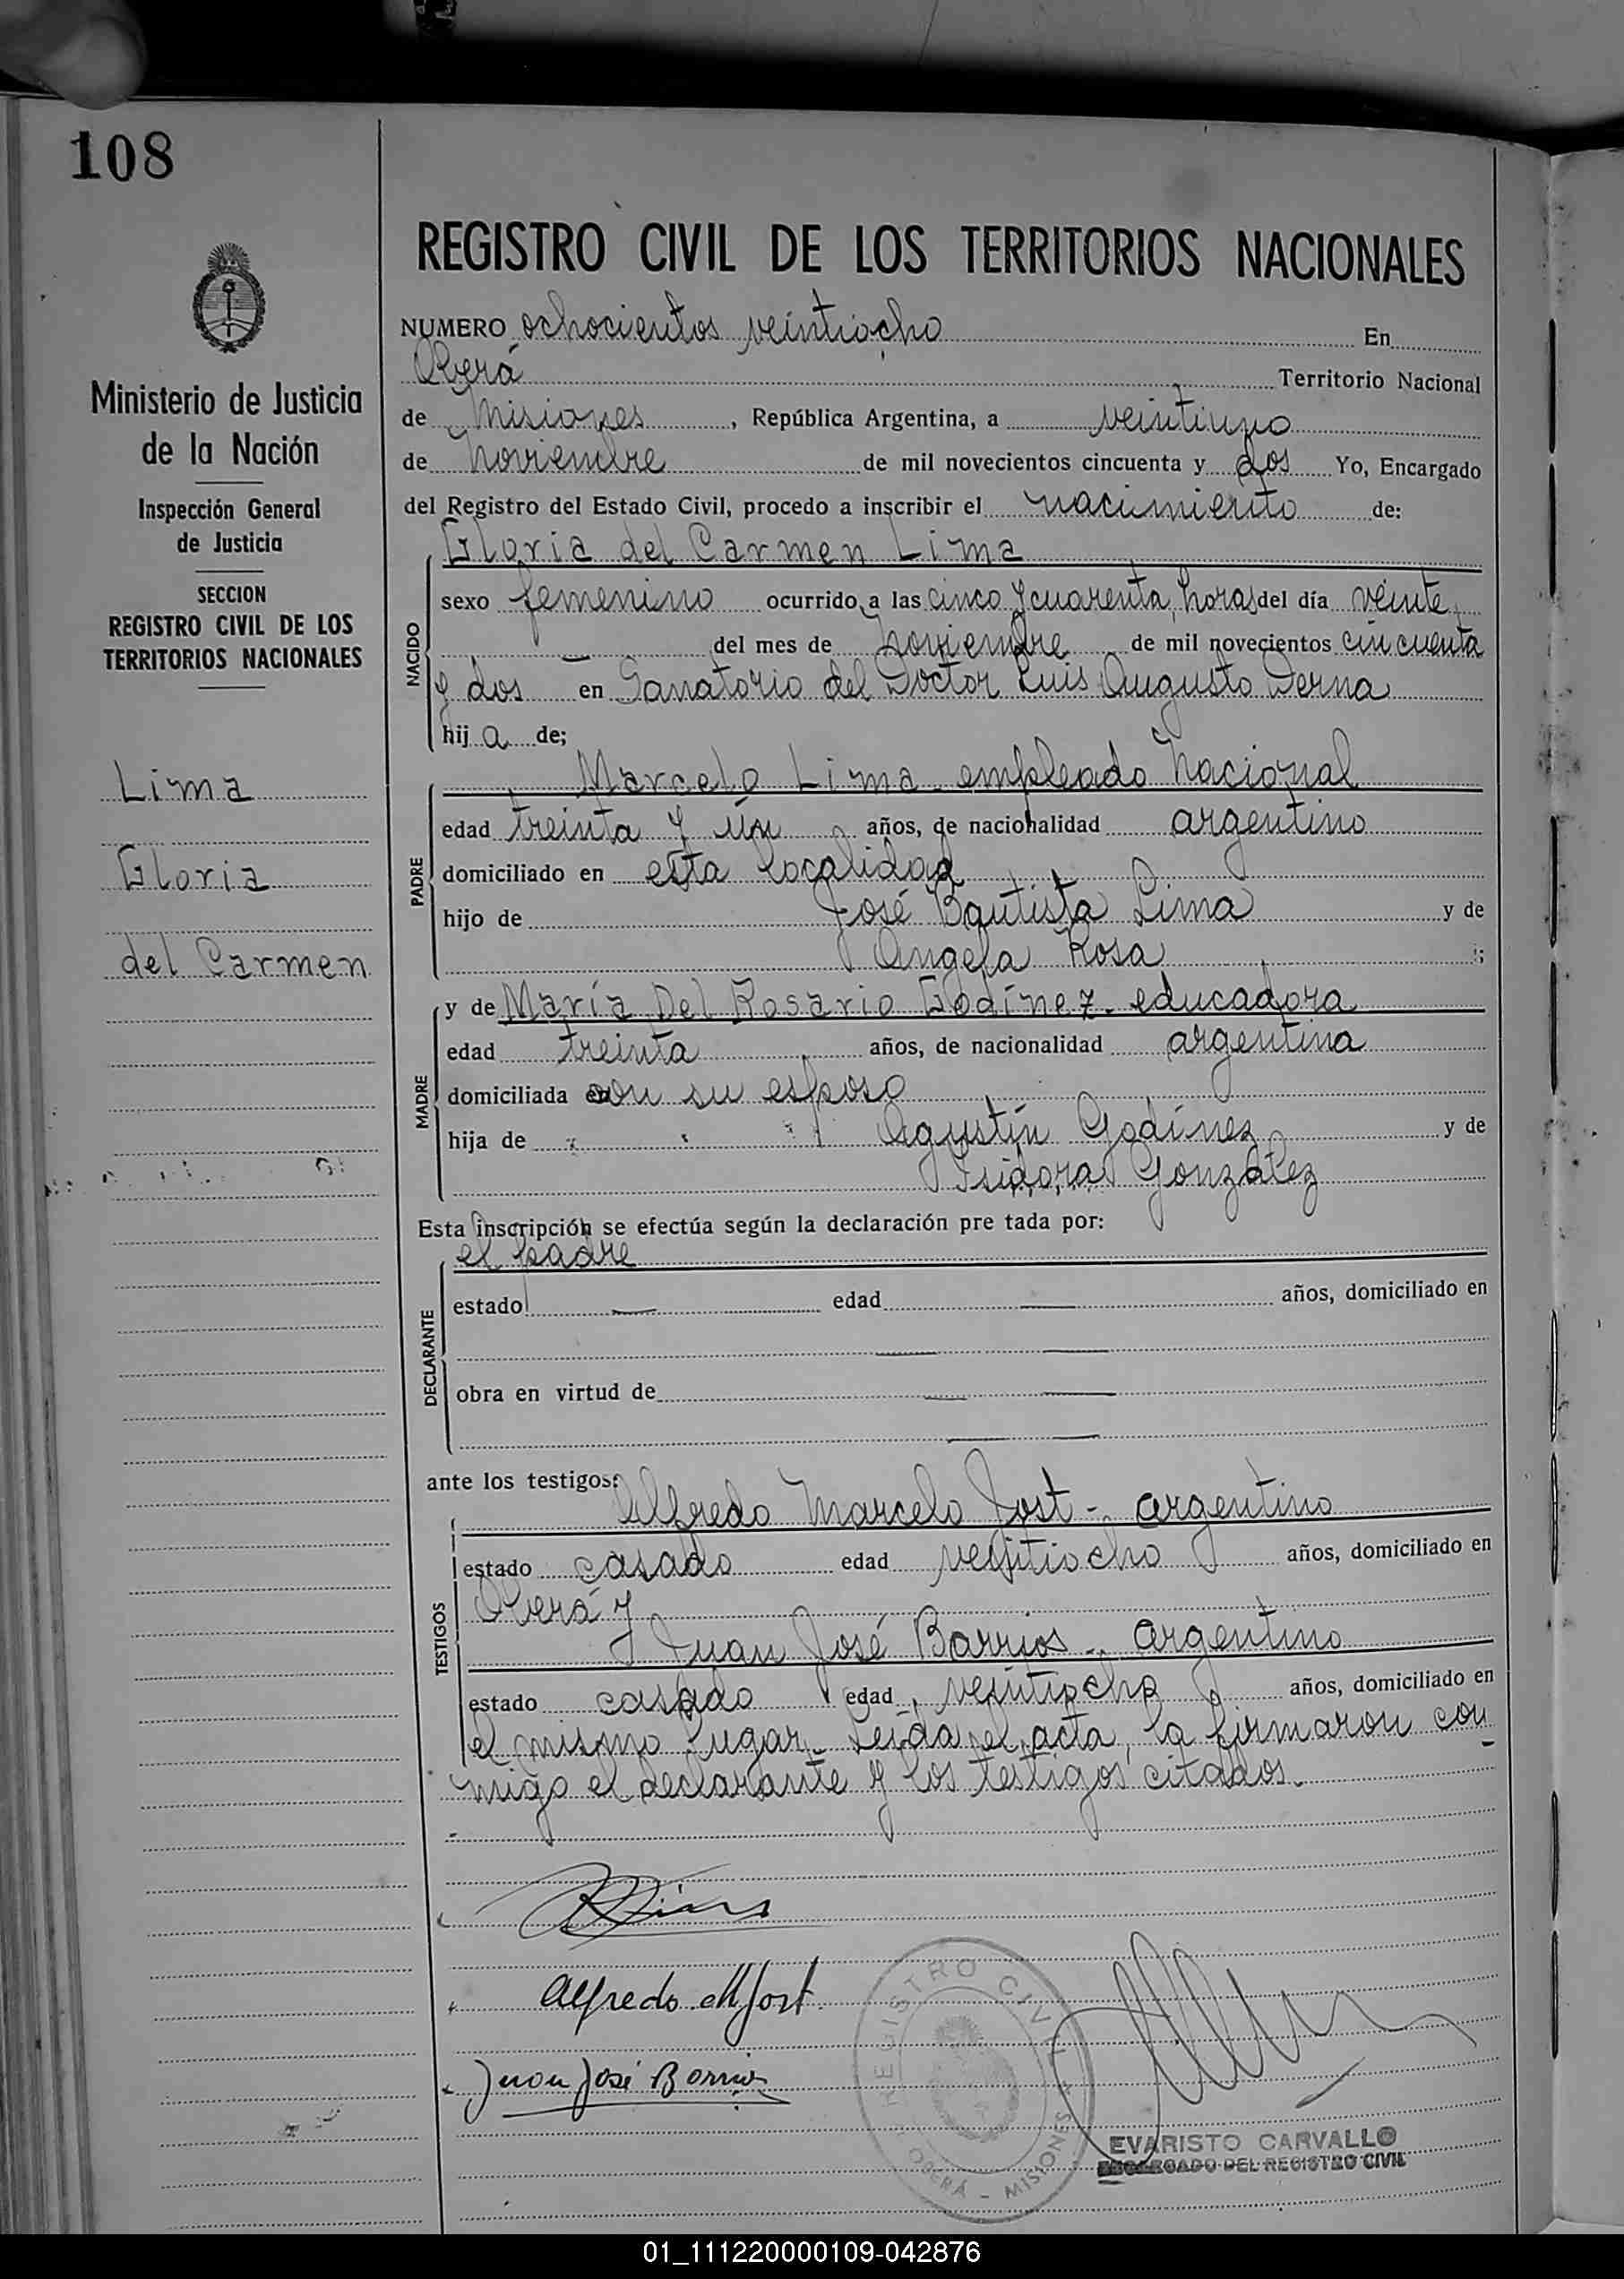 108
REGISTRO CIVIL DE LOS TERRITORIOS NACIONALES
Ministerio de Justicia
de la Nación
Inspección General
de Justicia
SECCION
REGISTRO CIVIL DE LOS
TERRITORIOS NACIONALES
Lima
Gloria
del Carmen
NUMERO ochocientos veintiocho En
Oberá Territorio Nacional
de Misiones, República Argentina, a veintiuno
de noviembre de mil novecientos cincuenta y dos Yo, Encargado
del Registro del Estado Civil, procedo a inscribir el nacimiento de:
NACIDO
Gloria del Carmen Lima
sexo femenino ocurrido a las cinco y cuarenta horas del día veinte
del mes de noviembre de mil novecientos cincuenta
y dos en Sanatorio del Doctor Luis Augusto Derna
hija de;
PADRE
Marcelo Lima - empleado Nacional
edad treinta y un años, de nacionalidad argentino
domiciliado en esta localidad
hijo de José Bautista Lima y de
Angela Rosa ;
MADRE
y de María Del Rosario Godínez - educadora
edad treinta años, de nacionalidad argentina
domiciliada con su esposo
hija de Agustín Godínez y de
Isidora González
Esta inscripción se efectúa según la declaración pre tada por:
DECLARANTE
el padre
estado — edad — años, domiciliado en
— —
obra en virtud de — —
—
ante los testigos:
TESTIGOS
Alfredo Marcelo Jost - argentino
estado casado edad veintiocho años, domiciliado en
Oberá y
Juan José Barrios - argentino
estado casado edad veintiocho años, domiciliado en
el mismo lugar. Leída el acta, la firmaron con-
migo el declarante y los testigos citados.
Alfredo M Jost
Juan José Barrios
REGISTRO CIVIL
OBERÁ - MISIONES
EVARISTO CARVALLO
ENCARGADO DEL REGISTRO CIVIL
01_111220000109-042876